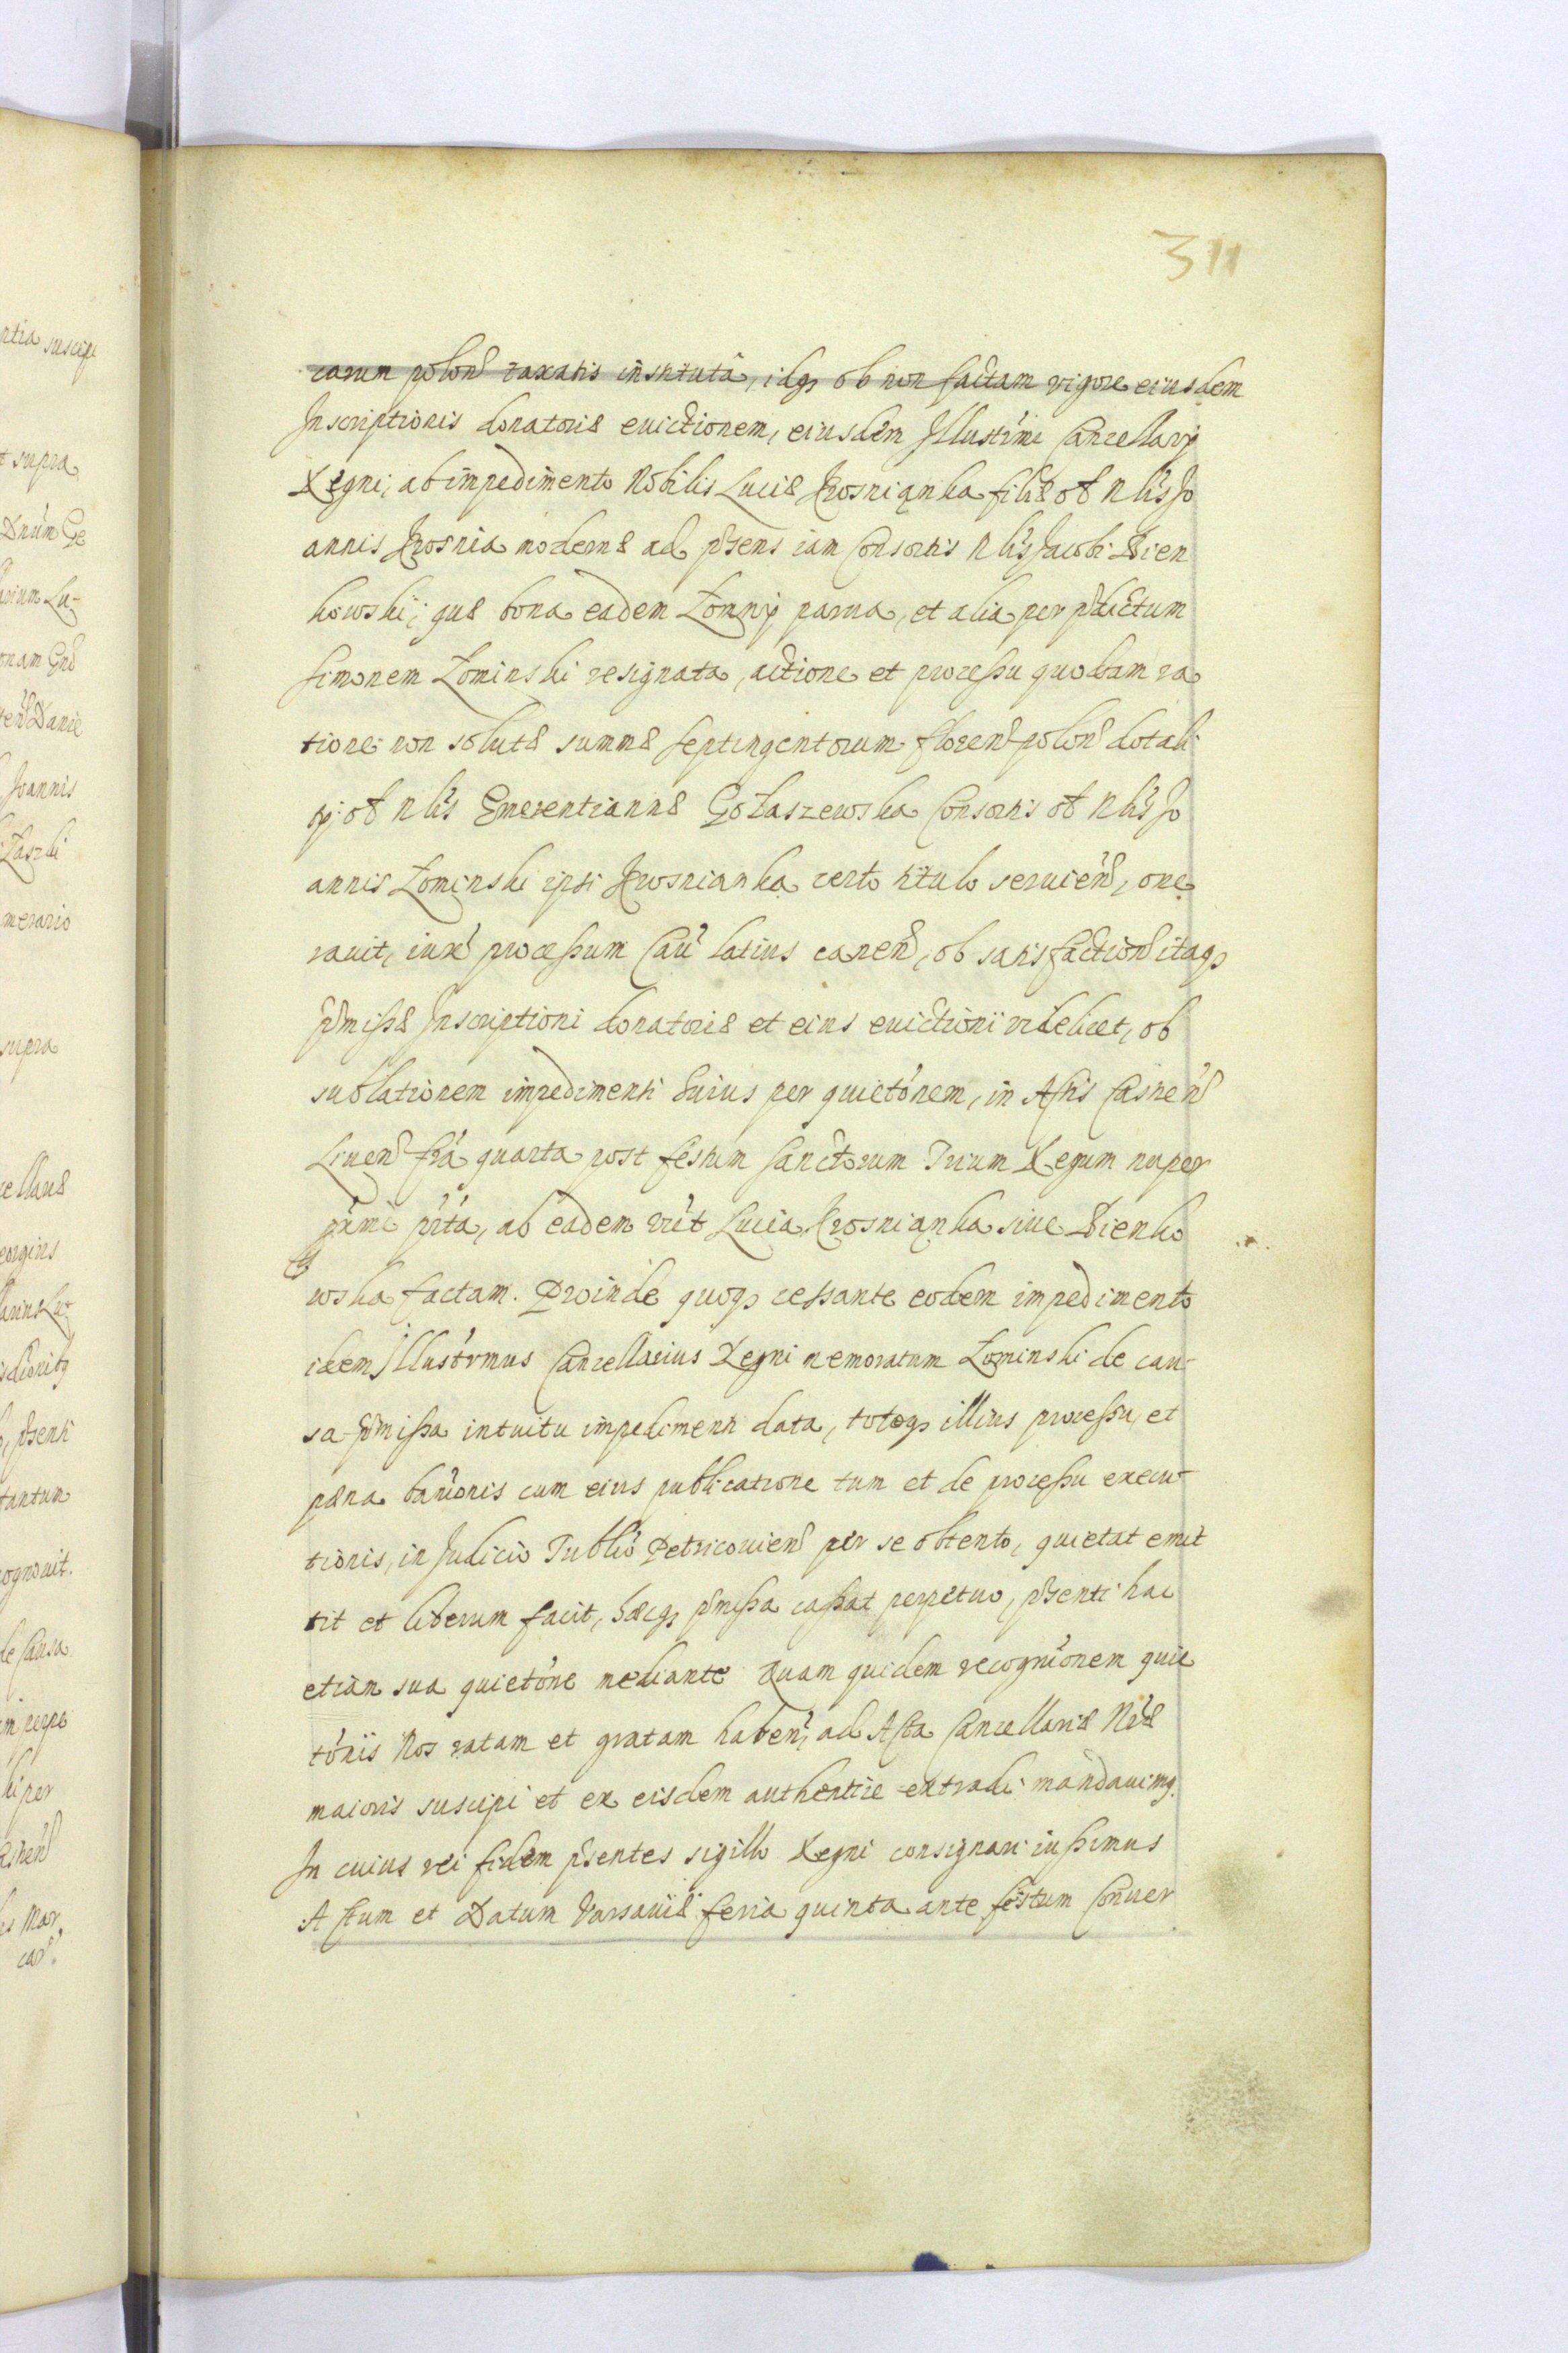 311
carum polon taxatis instituta, idq ob non factam vigore eiusdem
Inscriptionis donatoriæ evictionem, eiusdem Illustrmi Cancellarÿ
Regni, ab impedimento Nobilis Luciæ Krosnianka filiæ ol Nlis Jo
annis Krosnia modernæ ad pħsens iam Consortis Nlis Jacobi Bien
kowski; quæ bona eadem Łomnÿ parua, et alia per pħdictum
Simonem Łominski resignata, actione et processu quodam ra
tione non solutæ summæ septingentorum floren polon dotali
ÿ ol Nlis Emerentiannæ Gołaszewska Consortis ol Nlis Jo
annis Łominski ipsi Krosnianka certo titulo seruien, one
rauit, iux processum Cau latius canen, ob satisfaction itaq
pħmissæ Inscriptioni donatoriæ et eius evictioni videlicet, ob
sublationem impedimenti huius per quietonem, in Actis Castren
Liuen fria quarta post festum Sanctorum Trium Regum nuper
pxme prita, ab eadem Lucia Krosnianka siue Bienko
wska factam. Proinde quoq cessante eodem impedimento
idem Illustrmus Cancellarius Regni memoratum Łominski de cau-
sa pħmissa intuitu impedimenti data, totoq illius processu, et
pæna bannionis cum eius publicatione tum et de processu execu-
tionis, in Judicio Tribli Petricouien per se obtento, quietat emit
tit et liberum facit, hæcq pħmissa cassat perpetuo, pħsenti hac
etiam sua quietone mediante Quam quidem recognionem quie
tonis Nos ratam et gratam haben, ad Acta Cancellariæ Nræ
maioris suscipi et ex eisdem authentice extradi mandauimq.
In cuius rei fidem pħsentes sigillo Regni consignari iussimus
Actum et Datum Varsauiæ feria quinta ante festum Conuer